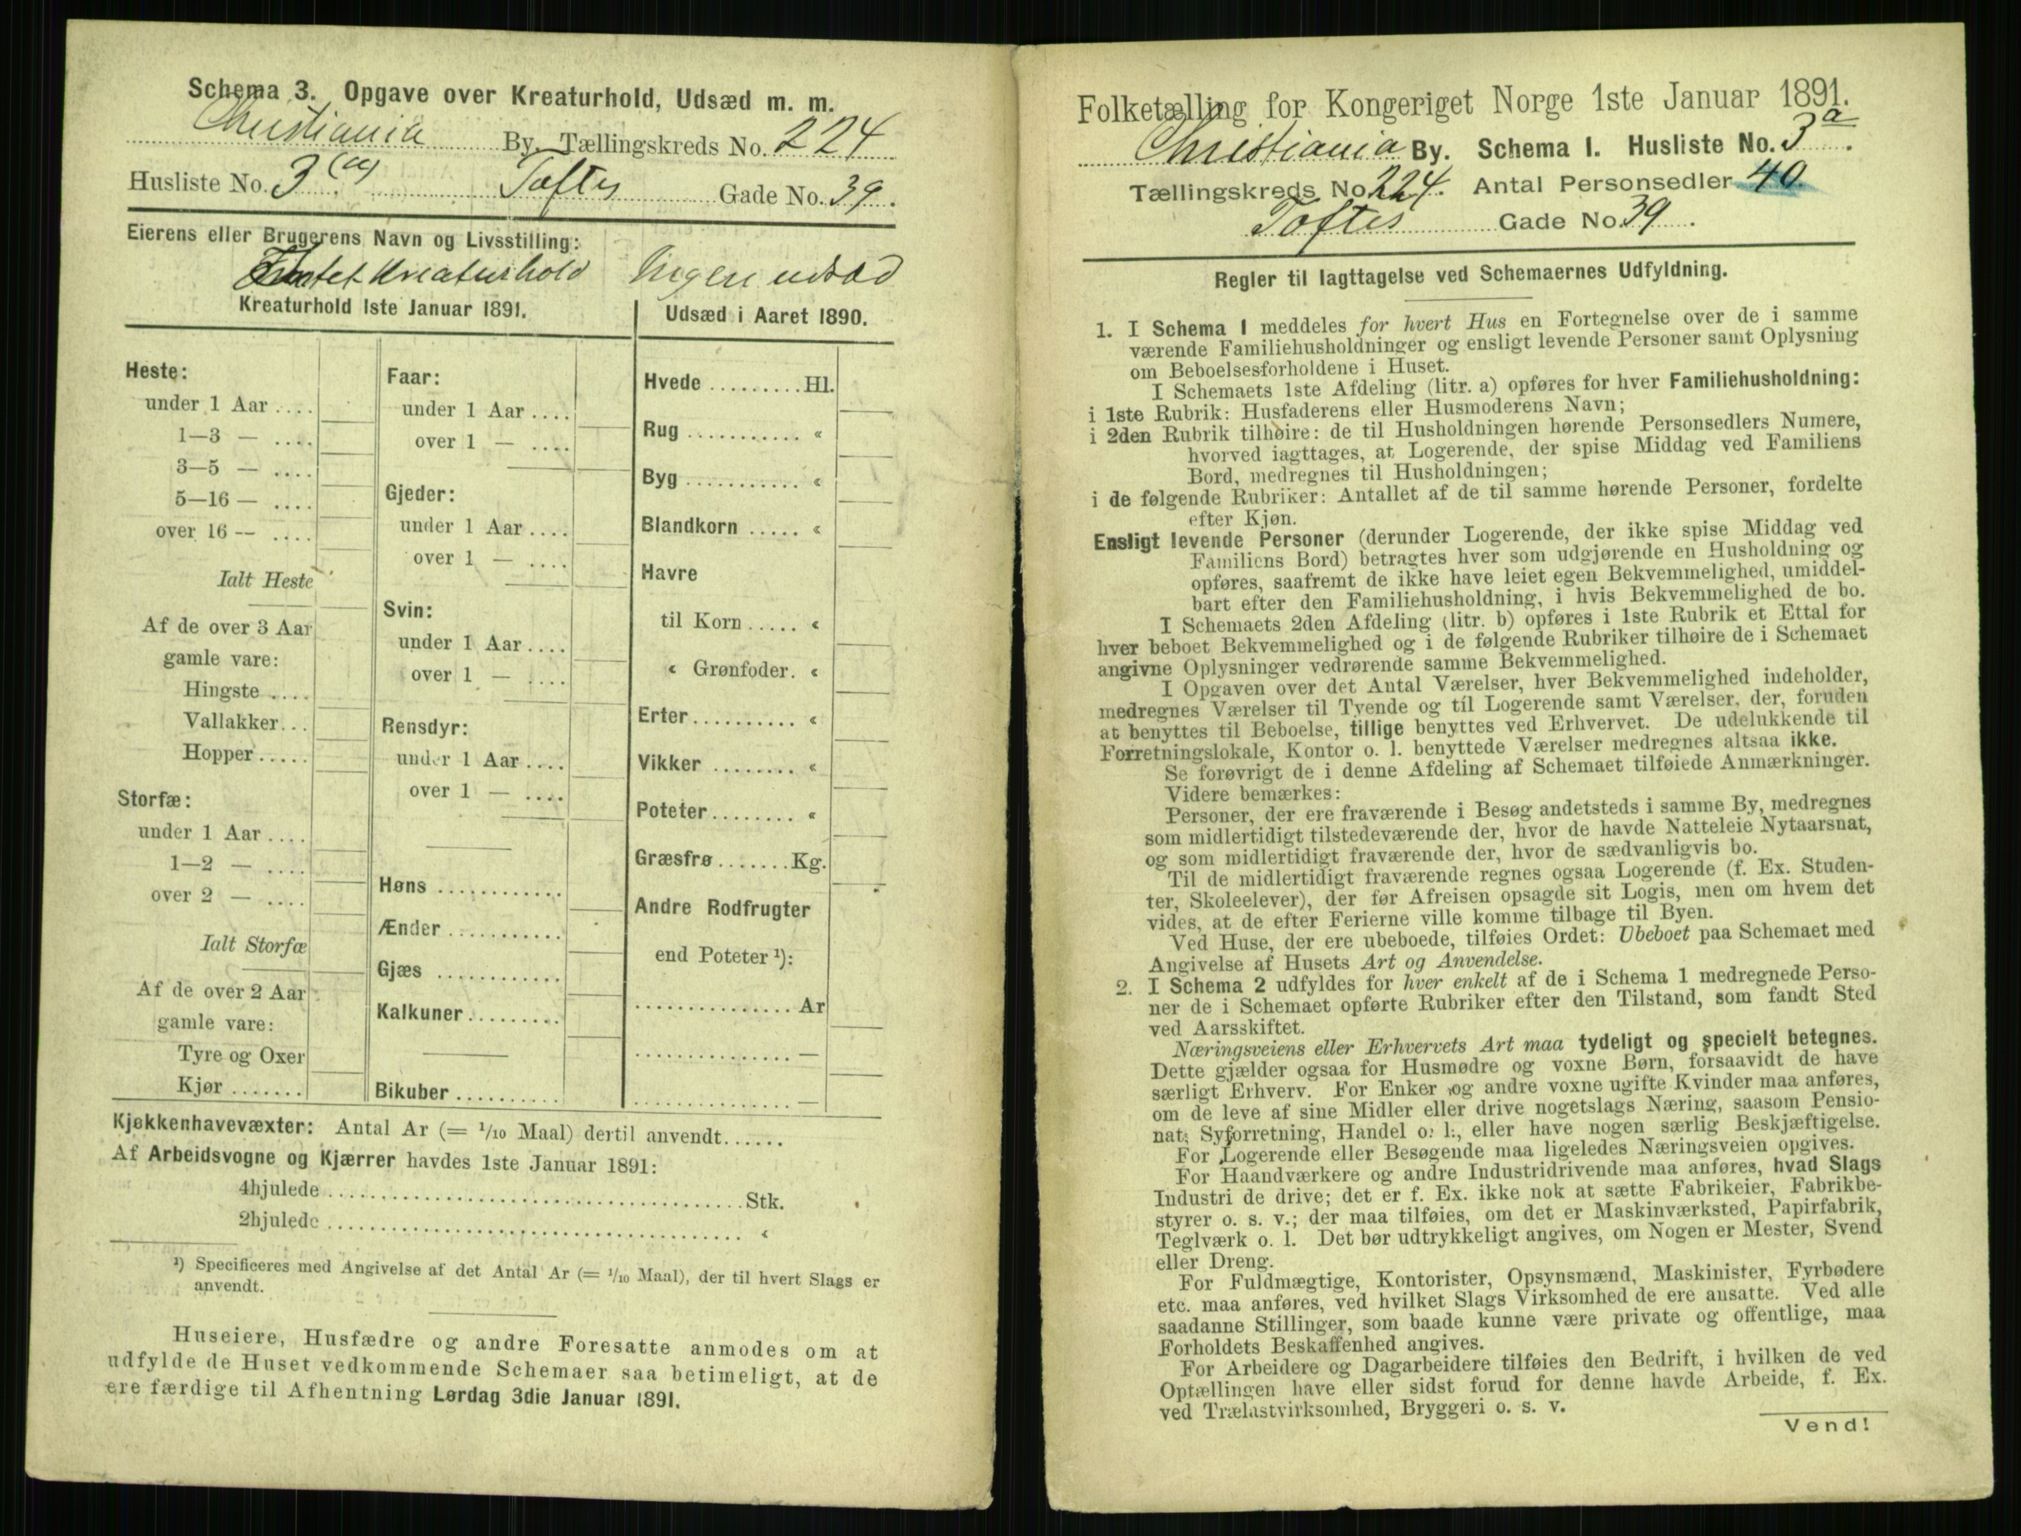 Schema 3. Opgave over Kreaturhold, Udsæd m. m.
Christiania By. Tællingskreds No. 224
Husliste No. 3 (a) Toftes Gade No. 39.
Eierens eller Brugerens Navn og Livsstilling:
Intet Kreaturhold Ingen udsæd
Kreaturhold 1ste Januar 1891.
Udsæd i Aaret 1890.
Heste:
under 1 Aar ....
1—3 — ....
3—5 — ....
5—16 — ....
over 16 — ....
Ialt Heste
Af de over 3 Aar
gamle vare:
Hingste ....
Vallakker...
Hopper.....
Storfæ:
under 1 Aar ....
1—2 — ....
over 2 — ....
Ialt Storfæ
Af de over 2 Aar
gamle vare:
Tyre og Oxer
Kjør .......
Faar:
under 1 Aar ....
over 1 — ....
Gjeder:
under 1 Aar ....
over 1 — ....
Svin:
under 1 Aar ....
over 1 — ....
Rensdyr:
under 1 Aar ....
over 1 — ....
Høns ............
Ænder ...........
Gjæs ............
Kalkuner.........
Bikuber ..........
Hvede .........Hl.
Rug ........... «
Byg ........... «
Blandkorn ..... «
Havre
til Korn ..... «
« Grønfoder. «
Erter.......... «
Vikker ........ «
Poteter........ «
Græsfrø.......Kg.
Andre Rodfrugter
end Poteter ¹):
............... Ar
............... —
............... —
Kjøkkenhavevæxter: Antal Ar (= 1/10 Maal) dertil anvendt......
Af Arbeidsvogne og Kjærrer havdes 1ste Januar 1891:
4hjulede ........................................Stk.
2hjulede ........................................ «
¹) Specificeres med Angivelse af det Antal Ar (= 1/10 Maal), der til hvert Slags er
anvendt.
Huseiere, Husfædre og andre Foresatte anmodes om at
udfylde de Huset vedkommende Schemaer saa betimeligt, at de
ere færdige til Afhentning Lørdag 3die Januar 1891.
Folketælling for Kongeriget Norge 1ste Januar 1891.
Christiania By. Schema I. Husliste No. 3 a.
Tællingskreds No. 224. Antal Personsedler 40.
Toftes Gade No. 39.
Regler til Iagttagelse ved Schemaernes Udfyldning.
1. I Schema 1 meddeles for hvert Hus en Fortegnelse over de i samme
værende Familiehusholdninger og ensligt levende Personer samt Oplysning
om Beboelsesforholdene i Huset.
I Schemaets 1ste Afdeling (litr. a) opføres for hver Familiehusholdning:
i 1ste Rubrik: Husfaderens eller Husmoderens Navn;
i 2den Rubrik tilhøire: de til Husholdningen hørende Personsedlers Numere,
hvorved iagttages, at Logerende, der spise Middag ved Familiens
Bord, medregnes til Husholdningen;
i de følgende Rubriker: Antallet af de til samme hørende Personer, fordelte
efter Kjøn.
Ensligt levende Personer (derunder Logerende, der ikke spise Middag ved
Familiens Bord) betragtes hver som udgjørende en Husholdning og
opføres, saafremt de ikke have leiet egen Bekvemmelighed, umiddel-
bart efter den Familiehusholdning, i hvis Bekvemmelighed de bo.
I Schemaets 2den Afdeling (litr. b) opføres i 1ste Rubrik et Ettal for
hver beboet Bekvemmelighed og i de følgende Rubriker tilhøire de i Schemaet
angivne Oplysninger vedrørende samme Bekvemmelighed.
I Opgaven over det Antal Værelser, hver Bekvemmelighed indeholder,
medregnes Værelser til Tyende og til Logerende samt Værelser, der, foruden
at benyttes til Beboelse, tillige benyttes ved Erhvervet. De udelukkende til
Forretningslokale, Kontor o. l. benyttede Værelser medregnes altsaa ikke.
Se forøvrigt de i denne Afdeling af Schemaet tilføiede Anmærkninger.
Videre bemærkes:
Personer, der ere fraværende i Besøg andetsteds i samme By, medregnes
som midlertidigt tilstedeværende der, hvor de havde Natteleie Nytaarsnat,
og som midlertidigt fraværende der, hvor de sædvanligvis bo.
Til de midlertidigt fraværende regnes ogsaa Logerende (f. Ex. Studen-
ter, Skoleelever), der før Afreisen opsagde sit Logis, men om hvem det
vides, at de efter Ferierne ville komme tilbage til Byen.
Ved Huse, der ere ubeboede, tilføies Ordet: Ubeboet paa Schemaet med
Angivelse af Husets Art og Anvendelse.
2. I Schema 2 udfyldes for hver enkelt af de i Schema 1 medregnede Perso-
ner de i Schemaet opførte Rubriker efter den Tilstand, som fandt Sted
ved Aarsskiftet.
Næringsveiens eller Erhvervets Art maa tydeligt og specielt betegnes.
Dette gjælder ogsaa for Husmødre og voxne Børn, forsaavidt de have
særligt Erhverv. For Enker og andre voxne ugifte Kvinder maa anføres,
om de leve af sine Midler eller drive nogetslags Næring, saasom Pensio-
nat, Syforretning, Handel o. l., eller have nogen særlig Beskjæftigelse.
For Logerende eller Besøgende maa ligeledes Næringsveien opgives.
For Haandværkere og andre Industridrivende maa anføres, hvad Slags
Industri de drive; det er f. Ex. ikke nok at sætte Fabrikeier, Fabrikbe-
styrer o. s. v.; der maa tilføies, om det er Maskinværksted, Papirfabrik,
Teglværk o. l. Det bør udtrykkeligt angives, om Nogen er Mester, Svend
eller Dreng.
For Fuldmægtige, Kontorister, Opsynsmænd, Maskinister, Fyrbødere
etc. maa anføres, ved hvilket Slags Virksomhed de ere ansatte. Ved alle
saadanne Stillinger, som baade kunne være private og offentlige, maa
Forholdets Beskaffenhed angives.
For Arbeidere og Dagarbeidere tilføies den Bedrift, i hvilken de ved
Optællingen have eller sidst forud for denne havde Arbeide, f. Ex.
ved Trælastvirksomhed, Bryggeri o. s. v.
Vend!